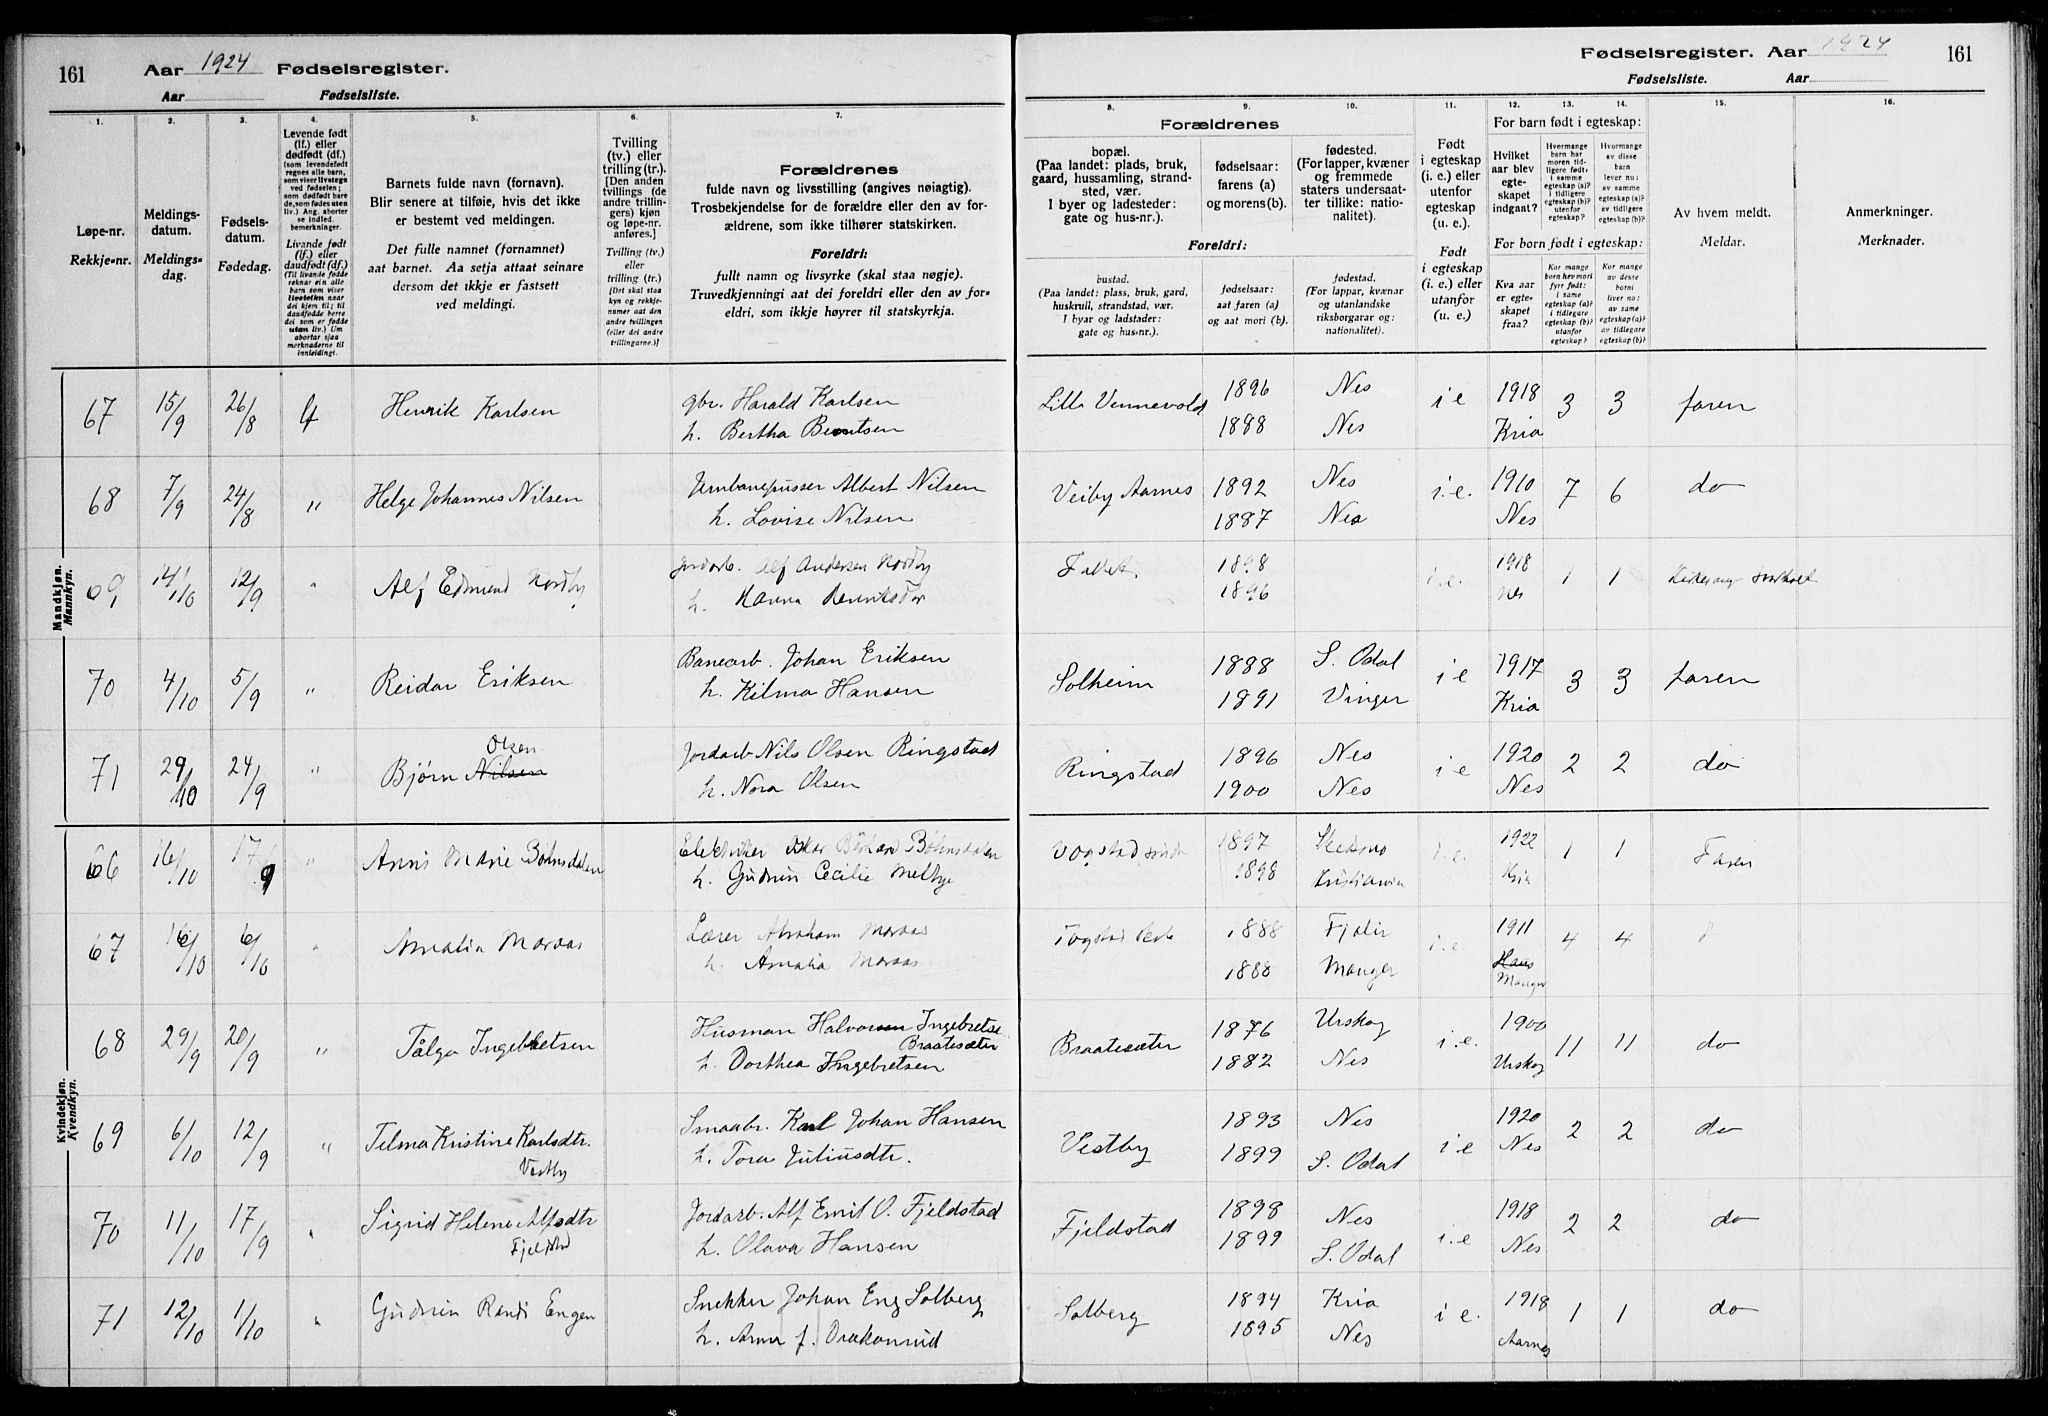 161 Aar 1924 Fødselsregister.
Aar Fødselsliste.
Fødselsregister. Aar 1924 161
Fødselsliste. Aar
1. 2. 3. 4. 5. 6. 7.
Løpe-nr.
Rekkje-nr.
Meldings-
datum.
Meldings-
dag.
Fødsels-
datum.
Fødedag.
Levende født
(lf.) eller
dødfødt (df.)
(som levendefødt
regnes alle barn,
som viser livstegn
ved fødselen;
som dødfødt bare
de, som fødes uten
liv.) Ang. aborter
se indled.
bemerkninger.
Livande født
(lf.) eller
daudfødt (df.)
(Til livande fødde
reknar ein alle
barn som viser
livsteikn naar
dei kjem til; til
daudfødde berre
dei som er fødde
utan liv.) Um
abortar sjaa
merknaderne til
innleidingi.
Barnets fulde navn (fornavn).
Blir senere at tilføie, hvis det ikke
er bestemt ved meldingen.
Det fulle namnet (fornamnet)
aat barnet. Aa setja attaat seinare
dersom det ikkje er fastsett
ved meldingi.
Tvilling
(tv.) eller
trilling (tr.).
[Den anden
tvillings (de
andre trillin-
gers) kjøn
og løpe-nr.
anføres.]
Tvilling (tv.)
eller
trilling (tr.)
[Det skal staa
kyn og rekkje-
numer aat den
andre tvillingen
(eller dei andre
trillingarne.)]
Forældrenes
fulde navn og livsstilling (angives nøiagtig).
Trosbekjendelse for de forældre eller den av for-
ældrene, som ikke tilhører statskirken.
Foreldri:
fullt namn og livsyrke (skal staa nøgje).
Truvedkjenningi aat dei foreldri eller den av for-
eldri, som ikkje høyrer til statskyrkja.
8. 9. 10. 11. 12. 13. 14. 15. 16.
Forældrenes
bopæl.
(Paa landet: plads, bruk,
gaard, hussamling, strand-
sted, vær.
I byer og ladesteder:
gate og hus-nr.).
fødselsaar:
farens (a)
og morens (b).
fødested.
(For lapper, kvæner
og fremmede
staters undersaat-
ter tillike: natio-
nalitet).
Foreldri:
bustad.
(Paa landet: plass, bruk, gard,
huskrull, strandstad, vær.
I byar og ladstader:
gate og hus-nr.).
fødselsaar:
aat faren (a)
og aat mori (b).
fødestad.
(For lappar, kvænar
og utanlandske
riksborgarar og:
nationalitet).
Født
i egteskap
(i. e.) eller
utenfor
egteskap
(u. e.).
Født
i egteskap
(i. e.) eller
utanfor
(u. e.)
For barn født i egteskap:
Hvilket
aar blev
egte-
skapet
indgaat?
Hvormange
barn har
moren tid-
ligere født:
i samme
egteskap (a)?
i tidligere
egteskap (b)?
utenfor
egteskap?
Hvormange
av disse
barn
lever nu:
av samme
egteskap (a)?
av tidligere
egteskap (b)?
For born født i egteskap:
Kva aar
er egte-
skapet
fraa?
Kor mange
born hev mori
fyrr født:
i same
egteskap (a)?
i tidlegare
egteskap (b)?
utanfor
egteskap?
Kor mange
av desse
borni
liver no:
av same
egteskap (a)?
av tidlegare
egteskap (b)?
Av hvem meldt.
Meldar.
Anmerkninger.
Merknader.
Mandkjøn.
Mannkyn.
67 15/9 26/8 lf Henrik Karlsen gbr. Harald Karlsen Lille Vennevold 1896 Nes i e 1918 3 3 faren
h. Bertha Berntsen 1888 Nes Kria
68 7/9 24/8 " Helge Johannes Nilsen Jernbanepusser Albert Nilsen Veiby Aarnes 1892 Nes i.e. 1910 7 6 do
h. Lovise Nilsen 1887 Nes Nes
69 14/10 12/9 " Alf Edmund Nordby Jordarb. Alf Andersen Nordby 1898 i.e. 1918 1 1
h. 1896 Nes
70 4/10 5/9 " Reidar Eriksen Banearb. Johan Eriksen Solheim 1888 S. Odal i e 1917 3 3 faren
h. Kilma Hansen 1891 Vinger Kria
71 29/10 24/9 " Bjørn Nilsen Olsen Jordarb Nils Olsen Ringstad Ringstad 1896 Nes i e 1920 2 2 do
h. Nora Olsen 1900 Nes Nes
Kvindekjøn.
Kvendkyn.
66 16/10 17/9 " Anni Marie Bøhnsdalen Elektriker Bøhnsdalen 1897 i.e. 1922 1 1 Faren
h. Gudrun Cecilie Melbye 1898 Kristiania Kria
67 16/10 6/10 " Amalia Maraas Lærer Abraham Maraas 1888 Fjaler i.e. 1911 4 4
h. Amalia Maraas 1888 Manger Manger
68 29/9 20/9 " Tålga Ingebretsen Husman Halvorsen Ingebretse Braatesæter Braatesæter 1876 Urskog i.e. 1900 11 11 do
h. Dorthea Ingebretsen 1882 Nes Urskog
69 6/10 12/9 " Telma Kristine Karlsdtr. Vestby Smaabr. Karl Johan Hansen Vestby 1893 Nes i e 1920 2 2 do
h. Tora Juliusdtr. 1899 S. Odal Nes
70 11/10 17/9 " Sigrid Helene Alfsdtr Fjeldstad Jordarb. Alf Emil O. Fjeldstad Fjeldstad 1898 Nes i.e 1918 2 2 do
h. Olava Hansen 1899 S. Odal Nes
71 12/10 1/10 " Gudrun Randi Engen Snekker Johan Eng Solberg Solberg 1894 Kria i e. 1918 1 1 do
h. Anna f. Drakonrud 1895 Nes Aarnes